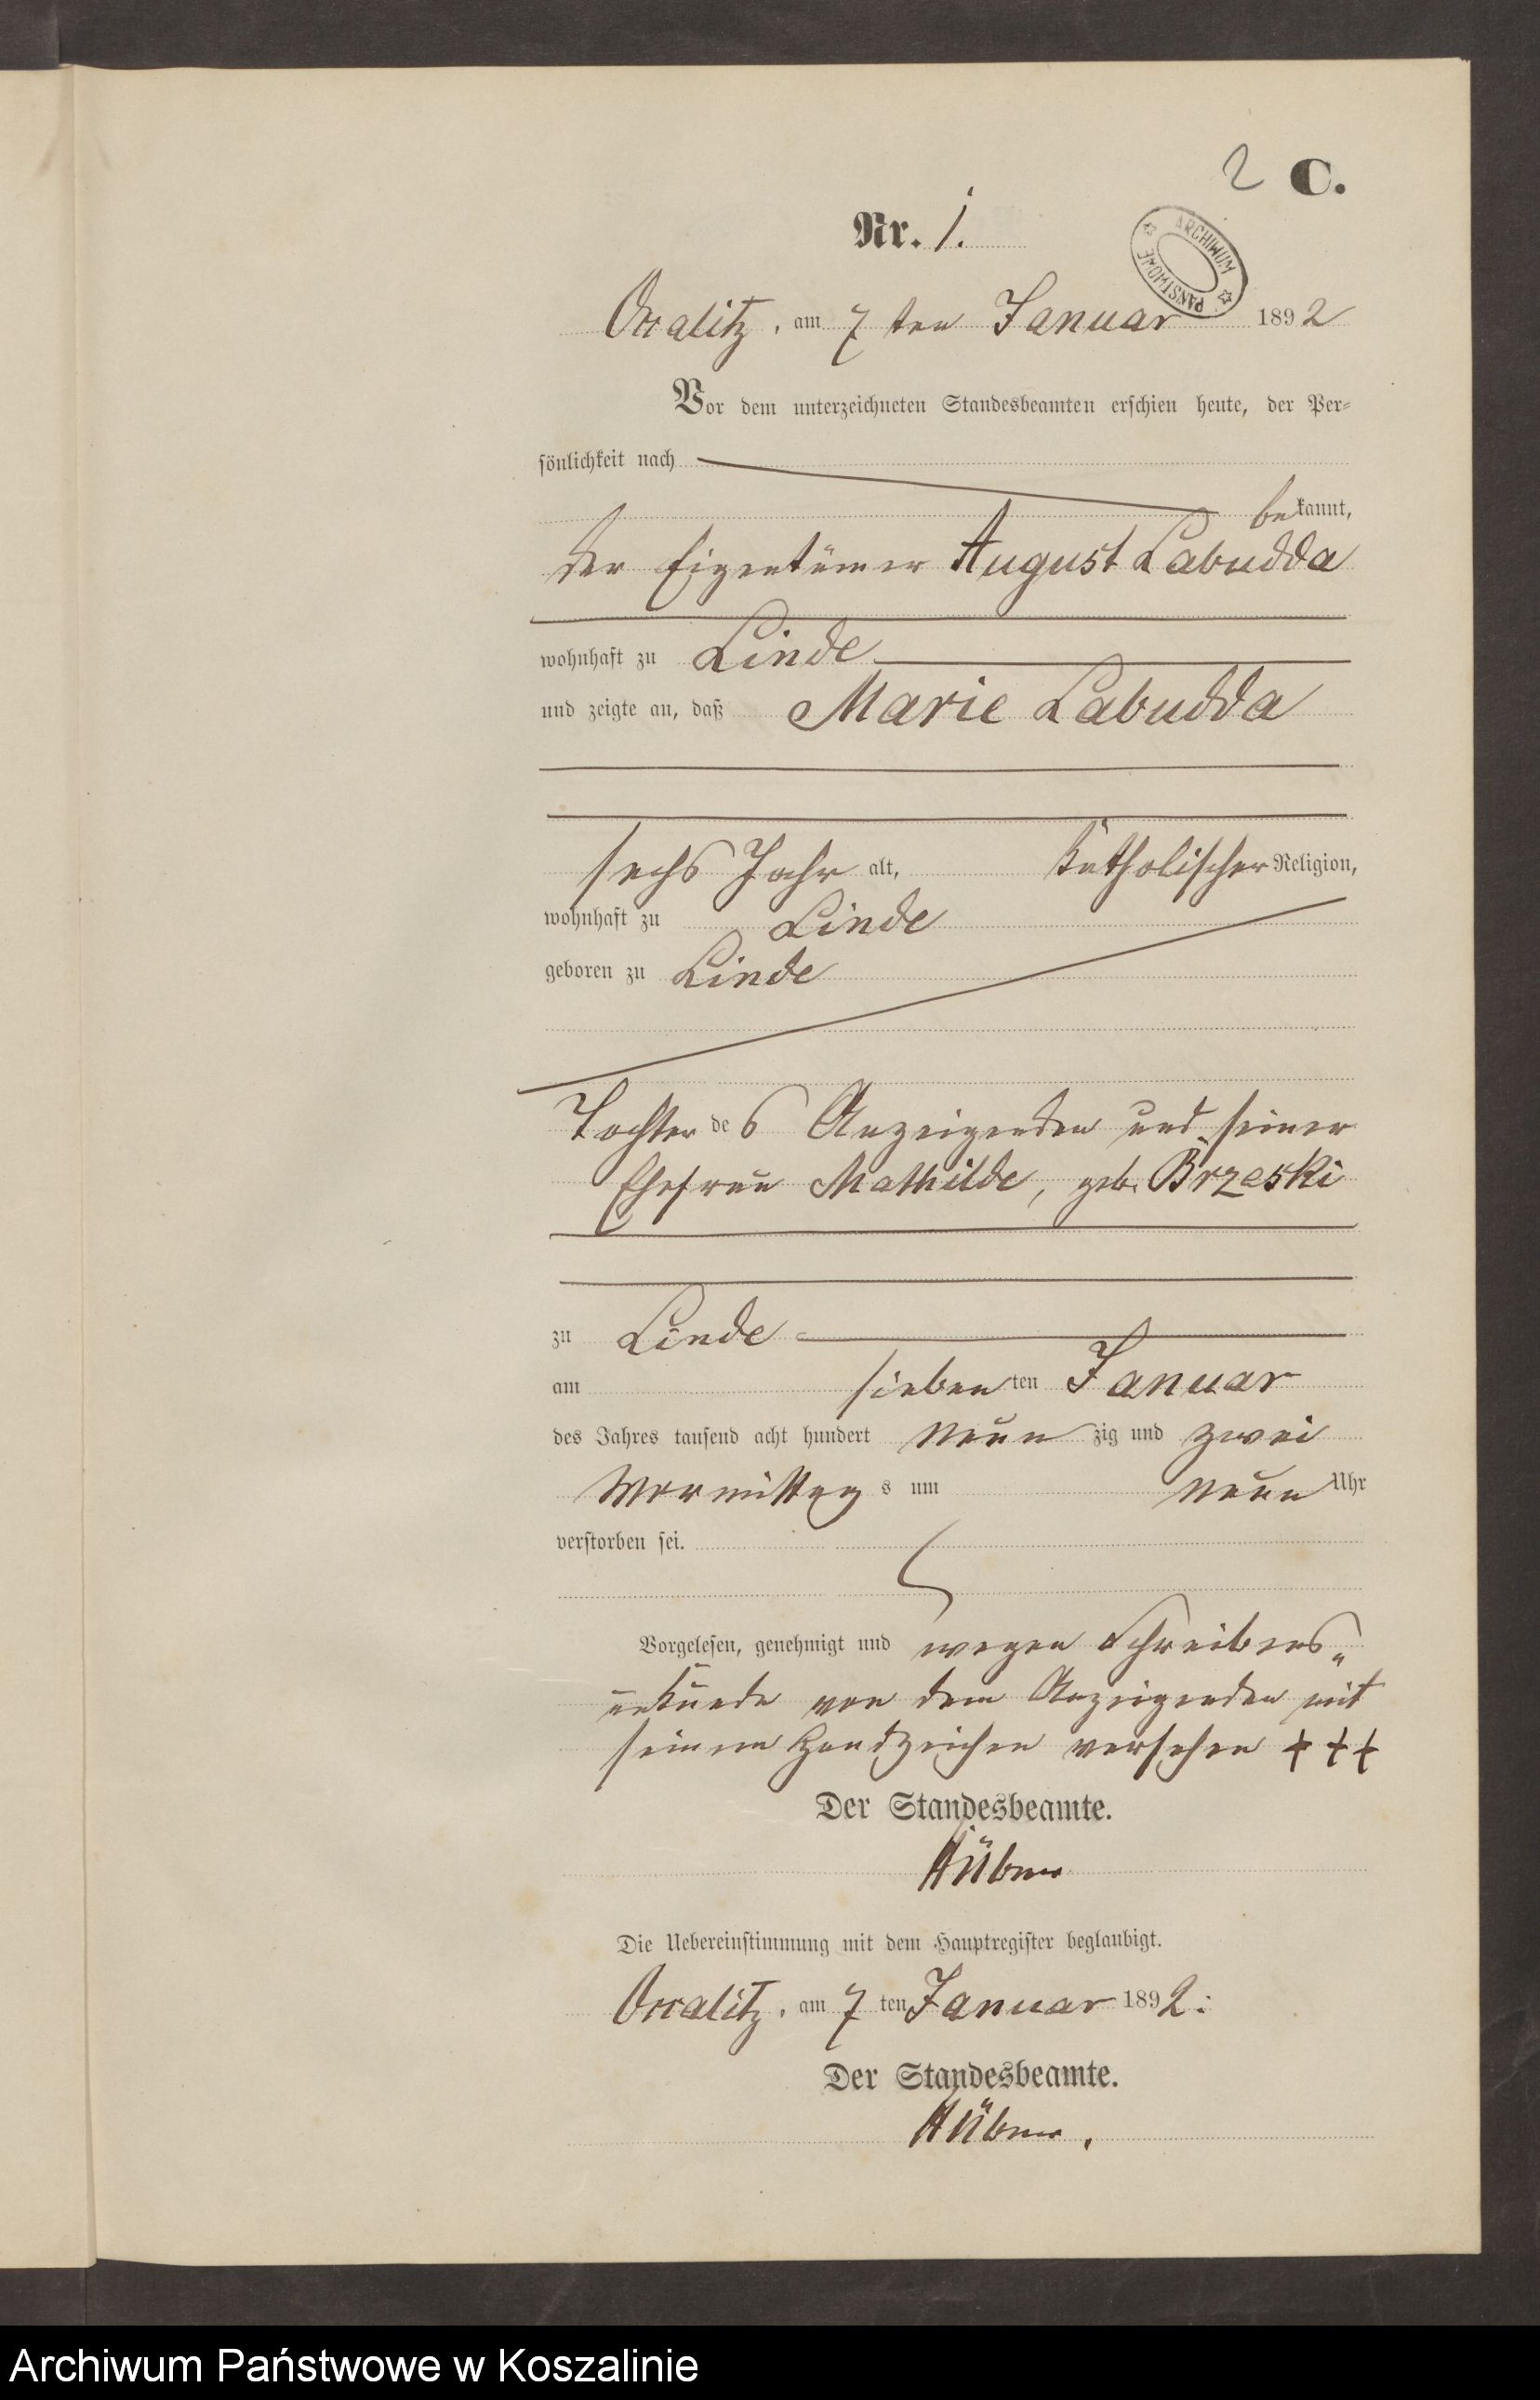 2 C.
Nr. 1.
ARCHIWUM PAŃSTWOWE
Occalitz, am 7 ten Januar 1892
Vor dem unterzeichneten Standesbeamten erschien heute, der Per-
sönlichkeit nach
bekannt,
der Eigentümer August Labudda
wohnhaft zu Linde
und zeigte an, daß Marie Labudda
sechs Jahr alt, katholischer Religion,
wohnhaft zu Linde
geboren zu Linde
Tochter des Anzeigenden und seiner
Ehefrau Mathilde, geb. Brzeski
zu Linde
am siebenten Januar
des Jahres tausend acht hundert neunzig und zwei
Vormittags um neun Uhr
verstorben sei.
Vorgelesen, genehmigt und wegen Schreibens-
unkunde von dem Anzeigenden mit
seinem Handzeichen versehen +++
Der Standesbeamte.
Hübner
Die Uebereinstimmung mit dem Hauptregister beglaubigt.
Occalitz, am 7 ten Januar 1892.
Der Standesbeamte.
Hübner.
Archiwum Państwowe w Koszalinie